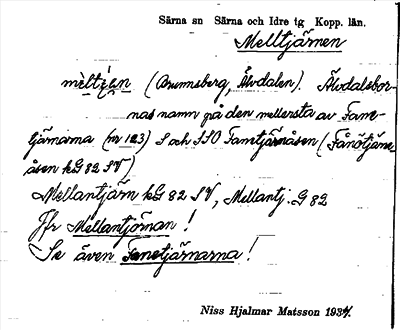 Särna sn Särna och Idre tg Kopp. län.
Melltjärnen
(Brunnsberg, Älvdalen). Älvdalsbor-
nas namn på den mellersta av Fame-
tjärnarna (nr 123) S och SSO Fametjärnåsen (Fånötjärns-
åsen kG 82 SV)
Mellantjärn kG 82 SV, Mellantj. G 82
Jfr Mellantjörnan !
Se även Fametjärnarna !
Niss Hjalmar Matsson 1934.